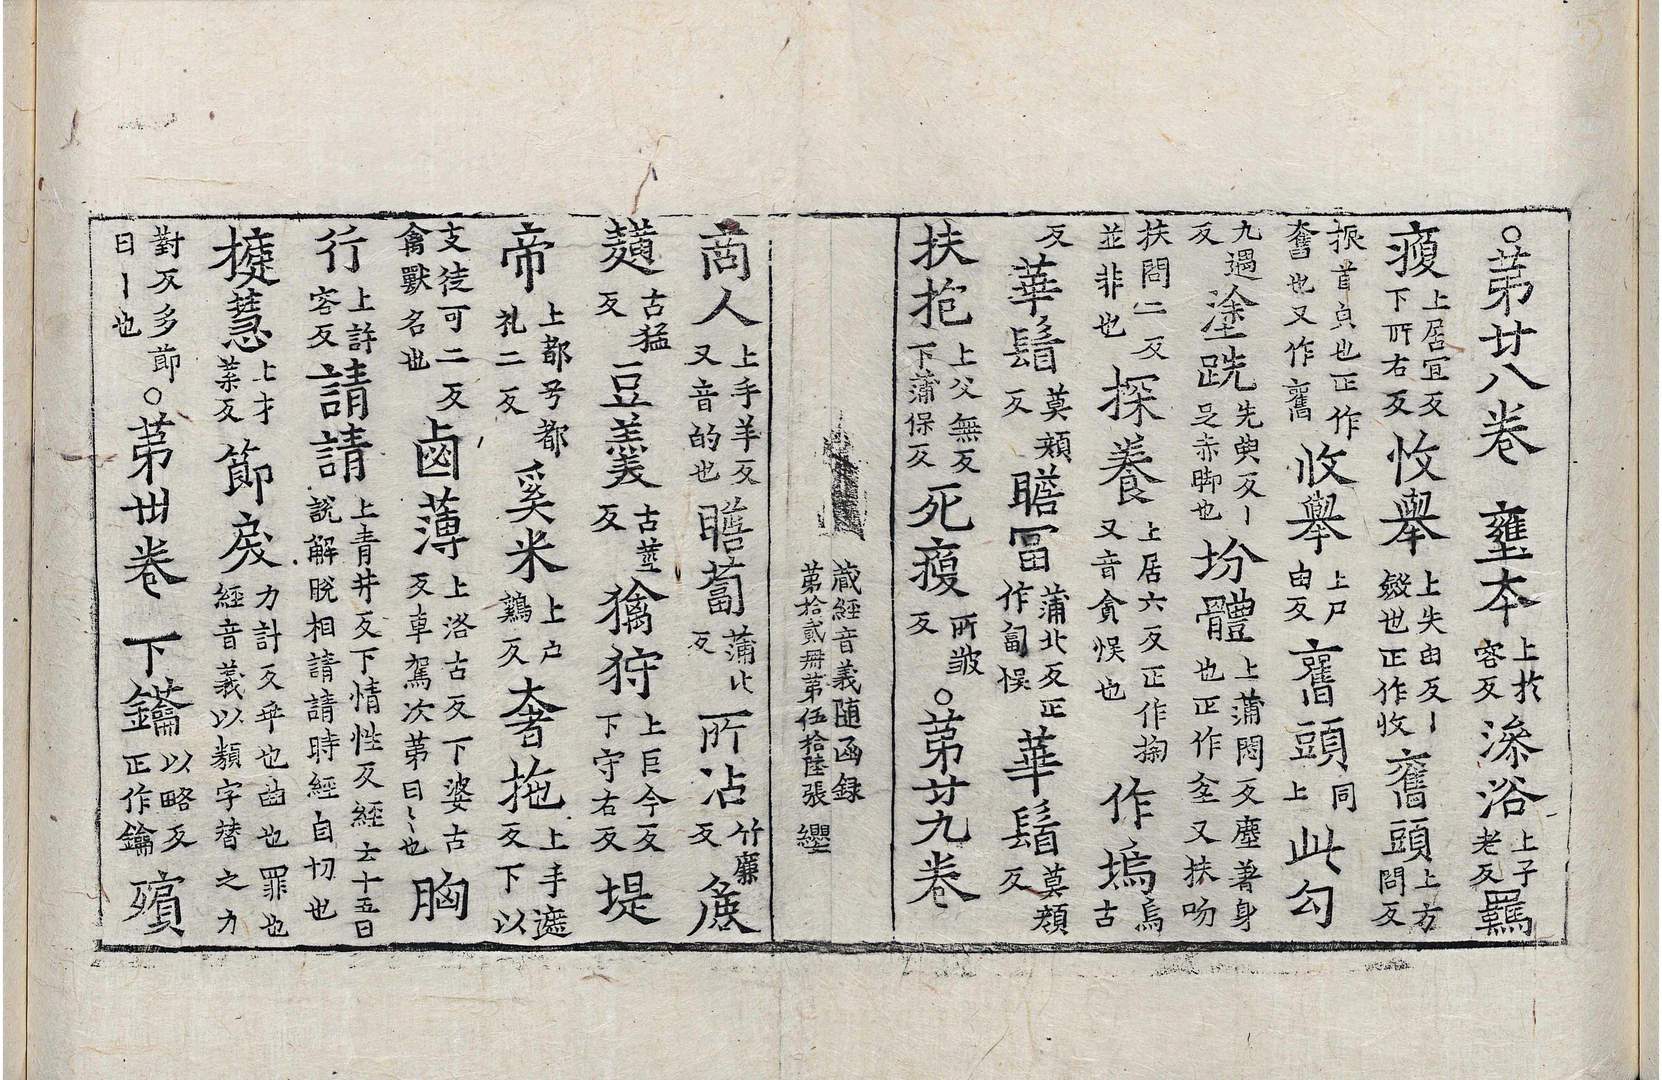 ○苐廿八卷 壅本上扵容反 澡浴上子老反 羇
瘦上居宜反下所右反 收舉上失由反丨斂也正作收 奮頭上方問反
振首㒵也正作奮也又作奮 收舉上尸由反 奮頭同上 此勾
九遇反 塗跣先典反丨足赤脚也 坋體上蒲悶反塵著身也正作坌又扶吻
扶問二反並非也 探養上居六反正作掬又音貪悮也 作塢烏古
反 華鬘莫顏反 瞻冨蒲北反正作匐悮 華鬘莫顏反
扶抱上父無反下蒲保反 死瘦所皱反 ○苐廿九卷
藏經音義随函録
苐拾貳冊苐伍拾陸張 纓
商人上手羊反又音的也 瞻蔔蒲北反 所沾竹廉反 麁
䵃古猛反 豆羹古䒳反 擒狩上巨今反下守右反 堤
帝上都兮都礼二反 奚米上户鷄反 奢拖上手遮反下以
支徒可二反禽獸名也 鹵薄上洛古反下婆古反車駕次苐曰丨丨也 胸
行上許容反 請請上青井反下情性反經云十五日說解脫相請請時經自切也
㨗慧上才葉反 節戾力計反乖也曲也罪也經音義以纇字替之力
對反多節曰丨也 ○苐丗卷 下鑰以略反正作鑰 殯